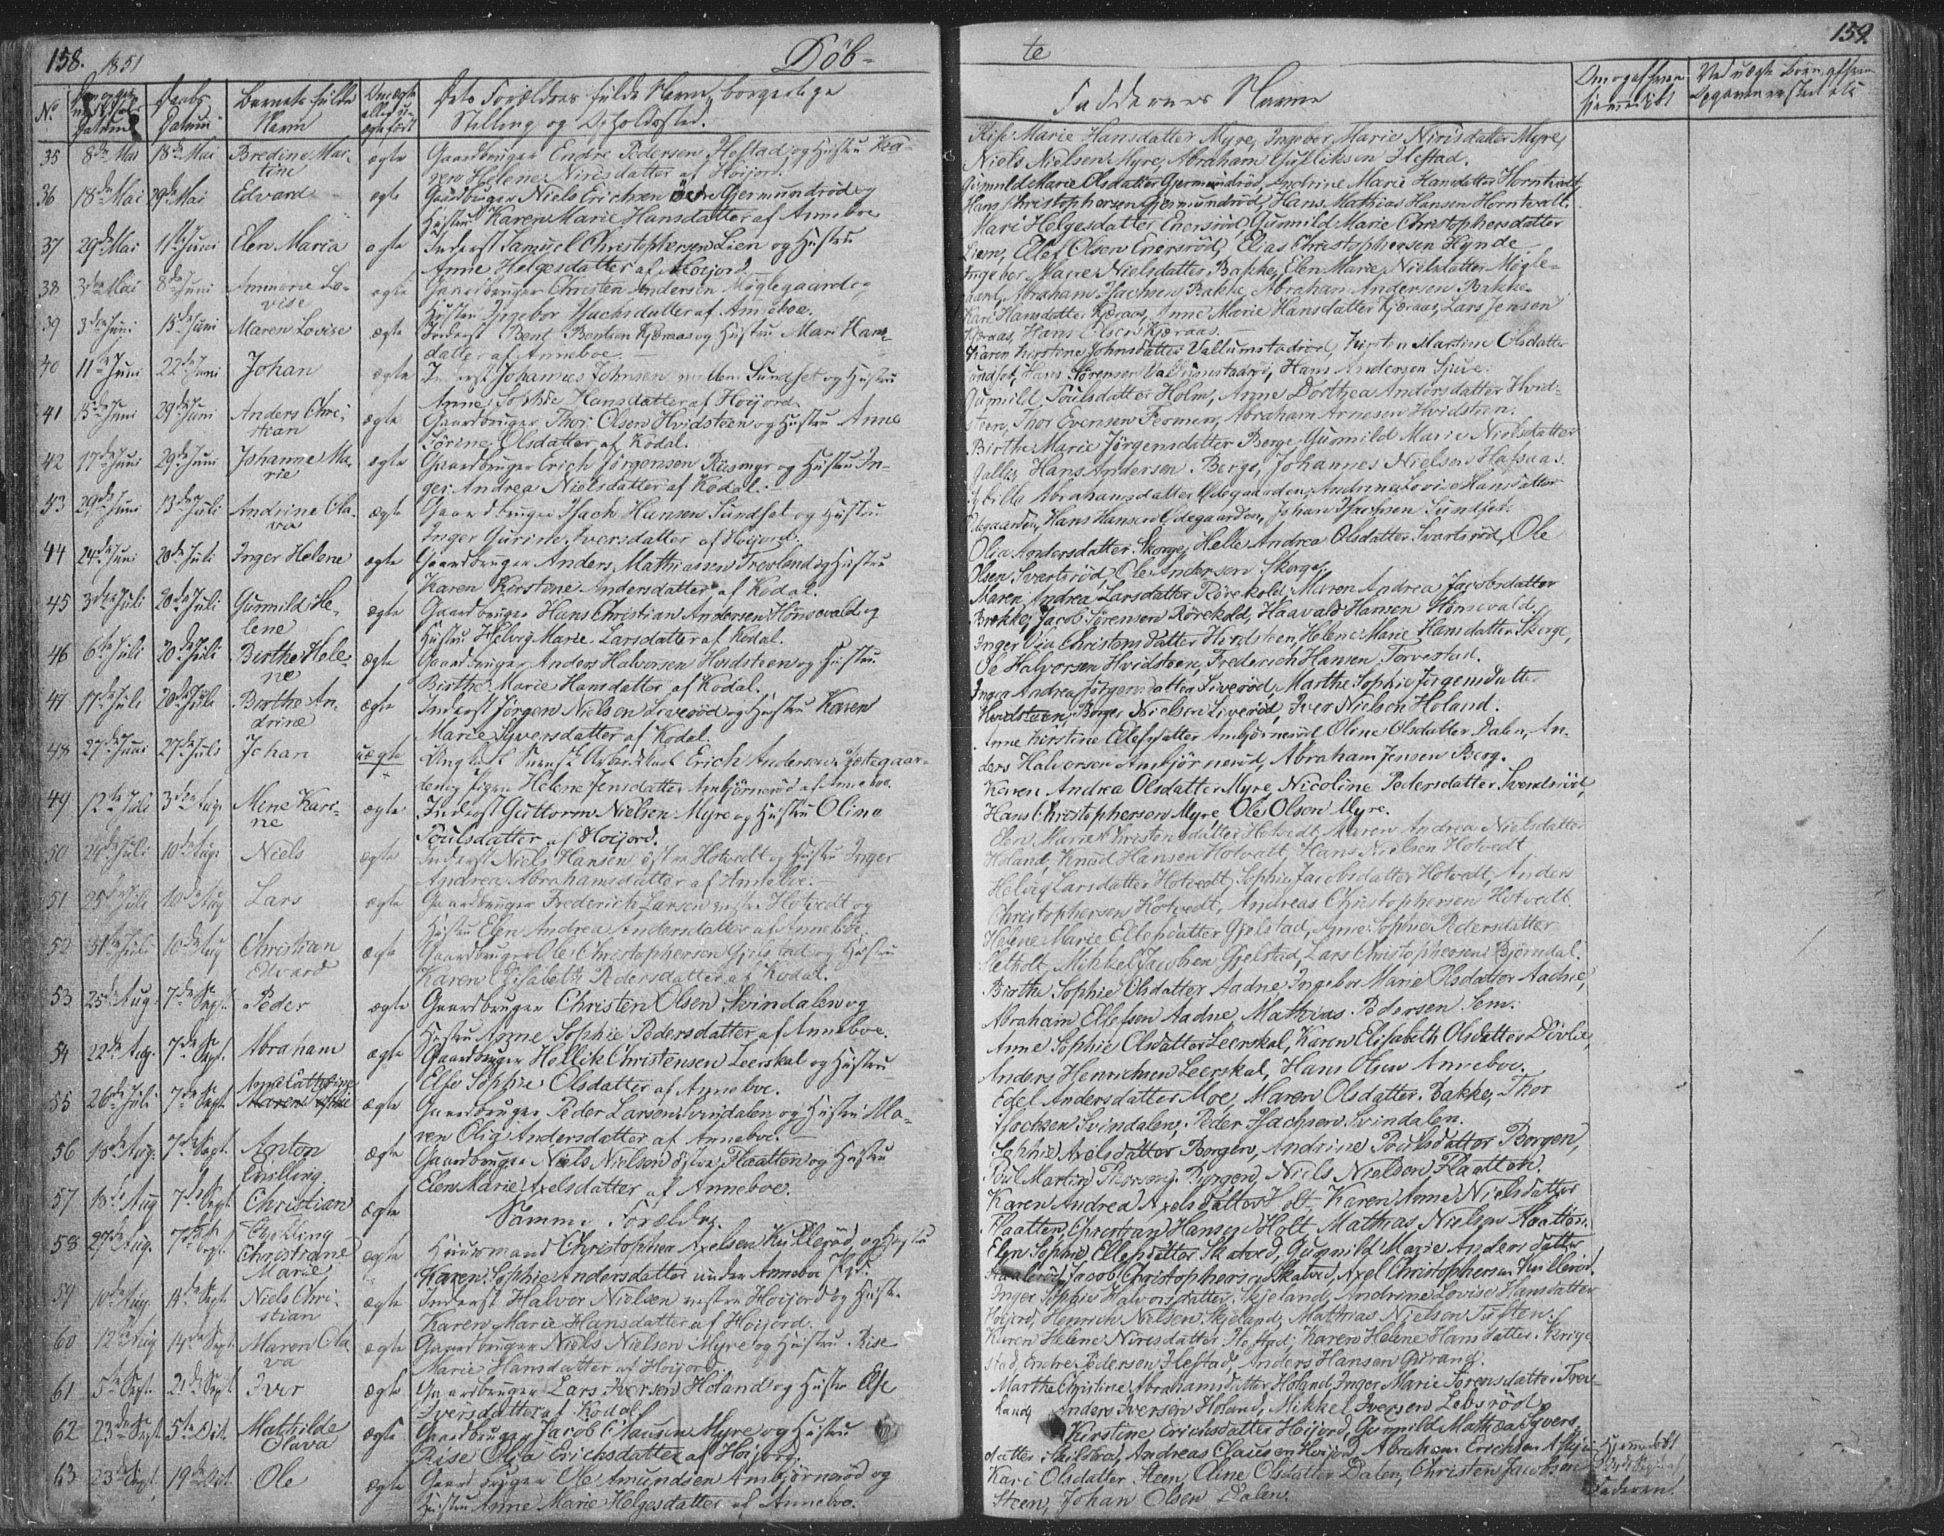 158. 1851 Döb-
No Barnets fulde Navn
Stilling og Opholdssted.
35 8de Mai 18de Mai Bredine Mar- ægte Gaardbruger Endre Pedersen Hestad og Hustru Ka-
tine ren Helene Nirisdatter af Höijord.
36 18de Mai 29de Mai Edvard ægte Gaardbruger Niels Erichsen övre Gjermundrød og
Hustru Karen Marie Hansdatter af Anneboe
37 29de Mai 11te Juni Elen Maria ægte Inderst Samuel Christophersen Lien og Hustru
Anne Helgesdatter af Höijord
38 8de Juni Lo- ægte Gaardbruger Christen Andersen Möglegaard og
vise Hustru Ingebor Isachsdatter af Anneboe.
39 3de Juni 15de Juni Maren Lovise ægte Inderst Bent Bentsen Kjæraas og Hustru Mari Hans-
datter af Anneboe.
40 11te Juni 22de Juni Johan ægte Inderst Johannes Johnsen mellem Sundset og Hustru
Anne Sophie Hansdatter af Höijord.
41 15de Juni 29de Juni Anders Chri- ægte Gaardbruger Thor Olsen Hvidsteen og Hustru Anne
stian Sörine Olsdatter af Kodal.
42 17de Juni 29de Juni Johanne Ma- ægte Gaardbruger Erich Jörgensen og Hustru In-
rie ger Andrea Nielsdatter af Kodal.
43 29de Juni 13de Juli Andrine Ola- ægte Gaardbruger Isach Hansen Sundset og Hustru
va Inger Gurine Iversdatter af Höijord.
44 24de Juni 20de Juli Inger Helene ægte Gaardbruger Anders Mathiassen Trevland og Hustru
Karen Kirstine Andersdatter af Kodal.
45 3de Juli 20de Juli Gunnild He- ægte Gaardbruger Hans Christian Andersen Hönsevald og
lene Hustru Helvig Marie Larsdatter af Kodal.
46 6te Juli 20de Juli Birthe Hele- ægte Gaardbruger Anders Halvorsen Hvidsteen og Hustru
ne Birthe Marie Hansdatter af Kodal.
47 17de Juli 20de Juli Birthe An- ægte Inderst Jörgen Nielsen Liverød og Hustru Karen
drine Marie Syversdatter af Kodal.
48 27de Juni 27de Juli Johan uægte Erich Andersen
Pigen Helene Jensdatter Ambjörnerød af Anneboe.
49 12te Juli 3die Aug. Mene Kari- ægte Inderst Guttorm Nielsen Myre og Hustru Oline
ne Poulsdatter af Höijord.
50 24de Juli 10de Aug. Niels ægte Inderst Niels Hansen östre Hotvedt og Hustru Inger
Andrea Abrahamsdatter af Anneboe.
51 25de Juli 10de Aug. Lars ægte Gaardbruger Frederich Larsen vestre Hotvedt og
Hustru Elen Andrea Andersdatter af Anneboe.
52 31te Juli 10de Aug Christian ægte Gaardbruger Ole Christophersen Gjelstad og Hustru
Edvard Karen Elisabeth Pedersdatter af Kodal.
53 25de Aug. 7de Sept. Peder ægte Gaardbruger Christen Olsen Svindalen og
Hustru Anne Sophie Pedersdatter af Anneboe.
54 22de Aug. 7de Sept. Abraham ægte Gaardbruger Hellik Christensen Leerskal og Hustru
Else Sophie Olsdatter af Anneboe.
Anne Cathrine
55 26de Juli 7de Sept. Maren Sophie ægte Gaardbruger Peder Larsen Svindalen og Hustru Ma-
ren Olia Andersdatter af Anneboe.
56 18de Aug. 7de Sept. Anton ægte Gaardbruger Niels Nielsen östre Flaatten og Hustru
tvilling Elen Marie Axelsdatter af Anneboe.
57 18de Aug 7de Sept. Christian ægte Samme Forældre.
tvilling
58 27de Aug. 7de Sept. Christiane ægte Huusmand Christopher Axelsen Kullerød og Hustru
Marie Karen Sophie Andersdatter under Anneboe
59 10de Aug 14de Sept. Niels Chri- ægte Inderst Halvor Nielsen vestre Höijord og Hustru
stian Karen Marie Hansdatter af Höijord.
60 12te Aug 14de Sept. Maren Ola- ægte Gaardbruger Niels Nielsen Myre og Hustru Rise
va Marie Hansdatter af Höijord.
61 5te Sept. 21de Sept. Iver ægte Gaardbruger Lars Iversen Holand og Hustru Else
Iversdatter af Kodal
62 23de Sept. 5te Oct. Mathilde ægte Gaardbruger Jacob Clausen Myre og Hustru
Olava Rise Olia Erichsdatter af Höijord.
63 23de Sept. 19de Oct. Ole ægte Gaardbruger Ole Amundsen Ambjörnerød og
Hustru Anne Marie Helgesdatter af Anneboe.
te 159.
Faddernes Navne
Marie Hansdatter Myre, Ingebor Marie Nirisdatter Myre,
Niels Nielsen Myre, Abraham Gulliksen Hestad.
Gunnild Marie Olsdatter Gjermundrød, Andrine Marie Hansdatter Horntvedt,
Hans Christophersen Gjermundrød, Hans Mathias Hansen Horntvedt.
Mari Helgesdatter Enersrød, Gunnild Marie Christophersdatter
Lien, Ellef Olsen Enersrød, Elias Christophersen Hynde
Ingebor Marie Nielsdatter Bakke, Elen Marie Nielsdatter Mögle-
gaard, Abraham Isachsen Bakke, Abraham Andersen Bakke
Kari Hansdatter Kjæraas, Anne Marie Hansdatter Kjæraas, Lars Jensen
Kjæraas, Hans Olsen Kjæraas.
Karen Kirstine Johnsdatter Vallumstadrød, Kirsten Martine Olsdatter
Sundset, Hans Sörensen Vallumstadrød, Hans Andersen
Gunnild Poulsdatter Holm, Anne Dorthea Andersdatter Hvid-
steen, Thor Evensen Feomen, Abraham Arnesen Hvidsteen.
Birthe Marie Jörgensdatter Berge, Gunnild Marie Nielsdatter
Hans Andersen Berge, Johannes Nielsen Hafsaas.
Abrahamsdatter Ödegaarden, Andrine Lovise Hansdatter
Ödegaarden, Hans Hansen Ödegaarden, Johan Isachsen Sundset.
Olia Andersdatter Skorge, Helle Andrea Olsdatter Svartsrød, Ole
Olsen Svertsrød, Ole Andersen Skorge.
Maren Andrea Larsdatter Rörekold, Maren Andrea Jacobsdatter
Brekke, Jacob Sörensen Rörekold, Haavald Hansen Hönsevald.
Inger Olia Christensdatter Hvidsteen, Helene Marie Hansdatter Skorge,
Ole Halvorsen Hvidsteen, Frederich Hansen Torvestad.
Inger Andrea Jörgensdatter Liverød, Marthe Sophie Jörgensdatter
Hvidsteen, Borger Nielsen Liverød, Iver Nielsen Holand.
Anne Kirstine Ellefsdatter Ambjörnerød, Oline Olsdatter Dalen, An-
ders Halvorsen Ambjörnerød, Abraham Jensen Berg.
Karen Andrea Olsdatter Myre, Nicoline Pedersdatter Svendsrød,
Hans Christophersen Myre, Ole Olsen Myre.
Elen Marie Christensdatter Hotvedt, Maren Andrea Nielsdatter
Holand, Knud Hansen Hotvedt, Hans Nielsen Hotvedt
Helvig Larsdatter Hotvedt, Sophie Jacobsdatter Hotvedt, Anders
Christophersen Hotvedt, Andreas Christophersen Hotvedt.
Helene Marie Ellefsdatter Gjelstad, Anne Sophie Pedersdatter
Sletholt, Mikkel Jacobsen Gjelstad, Lars Christophersen Bjørndal.
Birthe Sophie Olsdatter Aadne, Ingebor Marie Olsdatter Aadne,
Abraham Ellefsen Aadne, Mathias Pedersen Sem.
Anne Sophie Olsdatter Leerskal, Karen Elisabeth Olsdatter Dövle,
Anders Henrichsen Leerskal, Hans Olsen Anneboe.
Edel Andersdatter Moe, Maren Olsdatter Bakke, Thor
Isachsen Svindalen, Peder Isachsen Svindalen.
Sophie Axelsdatter Borgen, Andrine Poulsdatter Borgen,
Poul Martin Thorsen Borgen, Niels Nielsen Flaatten.
Karen Andrea Axelsdatter Holt, Karen Anne Nielsdatter
Flaatten, Christian Hansen Holt, Mathias Nielsen Flaatten.
Elen Sophie Ellefsdatter Skatved, Gunnild Marie Andersdatter
Jacob Christophersen Skatved, Axel Christophersen Kullerød.
Inger Sophie Halvorsdatter Skjeland, Andrine Lovise Hansdatter
Höijord, Henrich Nielsen Skjeland, Matthias Nielsen Tuften.
Karen Helene Nirisdatter Hestad, Karen Helene Hansdatter
stad, Endre Pedersen Hestad, Anders Hansen
Marthe Christine Abrahamsdatter Holand, Inger Marie Sörensdatter Trev-
land, Anders Iversen Holand, Mikkel Iversen Lebsrød.
Kirstine Erichsdatter Höijord, Gunnild Mathea Syvers-
datter Andreas Clausen Höijord, Abraham Erichsen Hjemmedöbt
Kari Olsdatter Steen, Oline Olsdatter Dalen, Christen Jacobsen
Steen, Johan Olsen Dalen. Faderen.